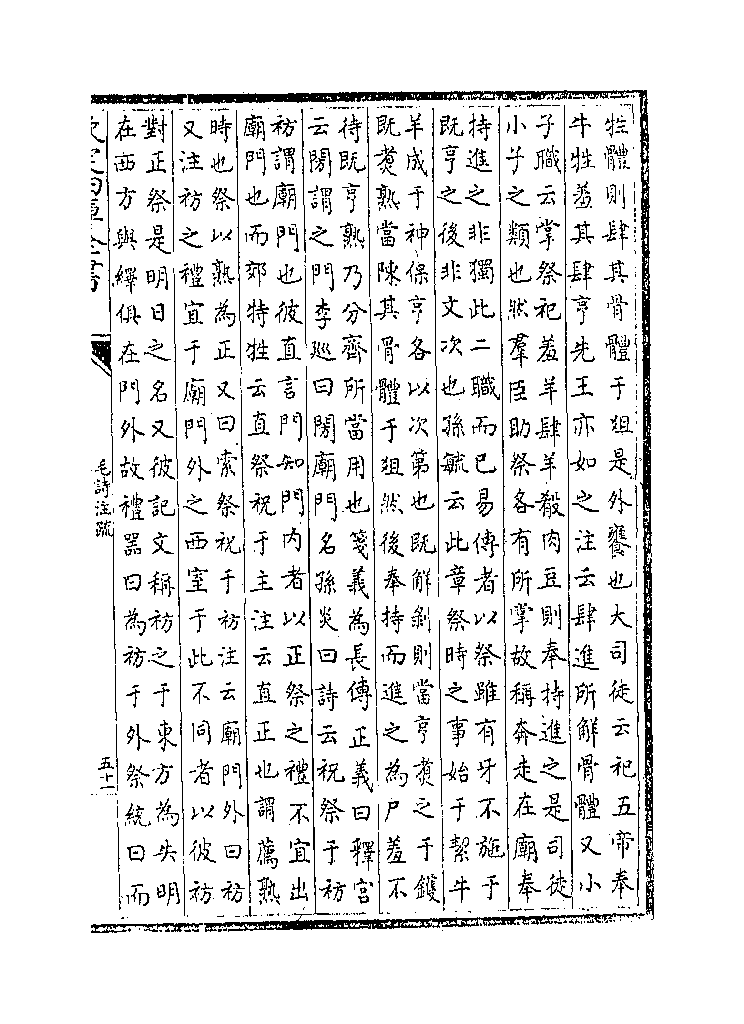 牲體則肆其骨體于俎是外饔也大司徒云祀五帝奉
牛牲羞其肆亨先王亦如之注云肆進所解骨體又小
子職云掌祭祀羞羊肆羊殽肉豆則奉持進之是司徒
小子之類也然羣臣助祭各有所掌故稱奔走在廟奉
持進之非獨此二職而已易傳者以祭雖有牙不施于
既亨之後非文次也孫毓云此章祭時之事始于絜牛
羊成于神保亨各以次第也既解剝則當亨煑之于鑊
既煑熟當陳其骨體于俎然後奉持而進之為尸羞不
待既亨熟乃分齊所當用也箋義為長傳正義曰釋宫
云閍謂之門李巡曰閍廟門名孫炎曰詩云祝祭于祊
祊謂廟門也彼直言門知門内者以正祭之禮不宜出
廟門也而郊特牲云直祭祝于主注云直正也謂薦熟
時也祭以熟為正又曰索祭祝于祊注云廟門外曰祊
又注祊之禮宜于廟門外之西室于此不同者以彼祊
對正祭是明日之名又彼記文稱祊之于東方為失明
在西方與繹俱在門外故禮器曰為祊于外祭統曰而
欽定四庫全書
毛詩注疏
五十一